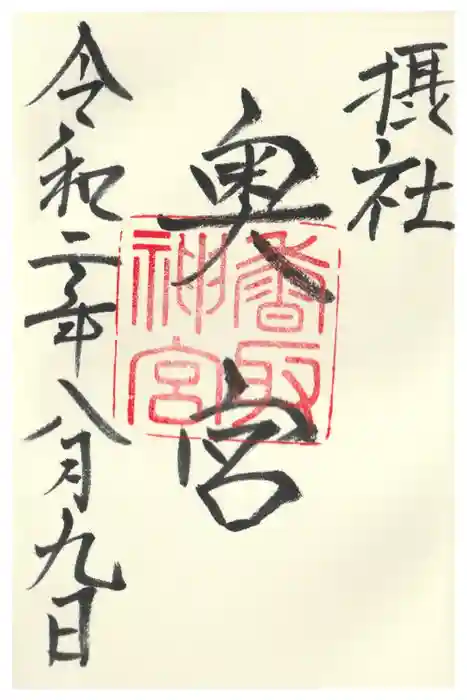 摂社
奥宮
香取
神宮
令和二年八月九日